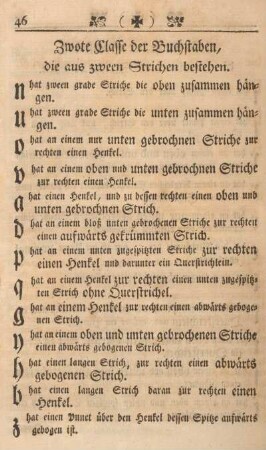 46 ( ✠ )
Zwote Classe der Buchstaben,
die aus zween Strichen bestehen.
n hat zween grade Striche die oben zusammen hän-
gen.
u hat zween grade Striche die unten zusammen hän-
gen.
o hat an einem nur unten gebrochnen Striche zur
rechten einen Henkel.
v hat an einem oben und unten gebrochnen Striche
zur rechten einen Henkel.
a hat einen Henkel, und zu dessen rechten einen oben und
unten gebrochnen Strich.
d hat an einem bloß unten gebrochenen Striche zur rechten
einen aufwärts gekrümmten Strich.
p hat an einem unten zugespitzten Striche zur rechten
einen Henkel und darunter ein Querstrichlein.
q hat an einem Henkel zur rechten einen unten zugespitz-
ten Strich ohne Querstrichel.
g hat an einem Henkel zur rechten einen abwärts geboge-
nen Strich.
y hat an einem oben und unten gebrochenen Striche
einen abwärts gebogenen Strich.
h hat einen langen Strich, zur rechten einen abwärts
gebogenen Strich.
b hat einen langen Strich daran zur rechten einen
Henkel.
z hat einen Punct über den Henkel dessen Spitze aufwärts
gebogen ist.